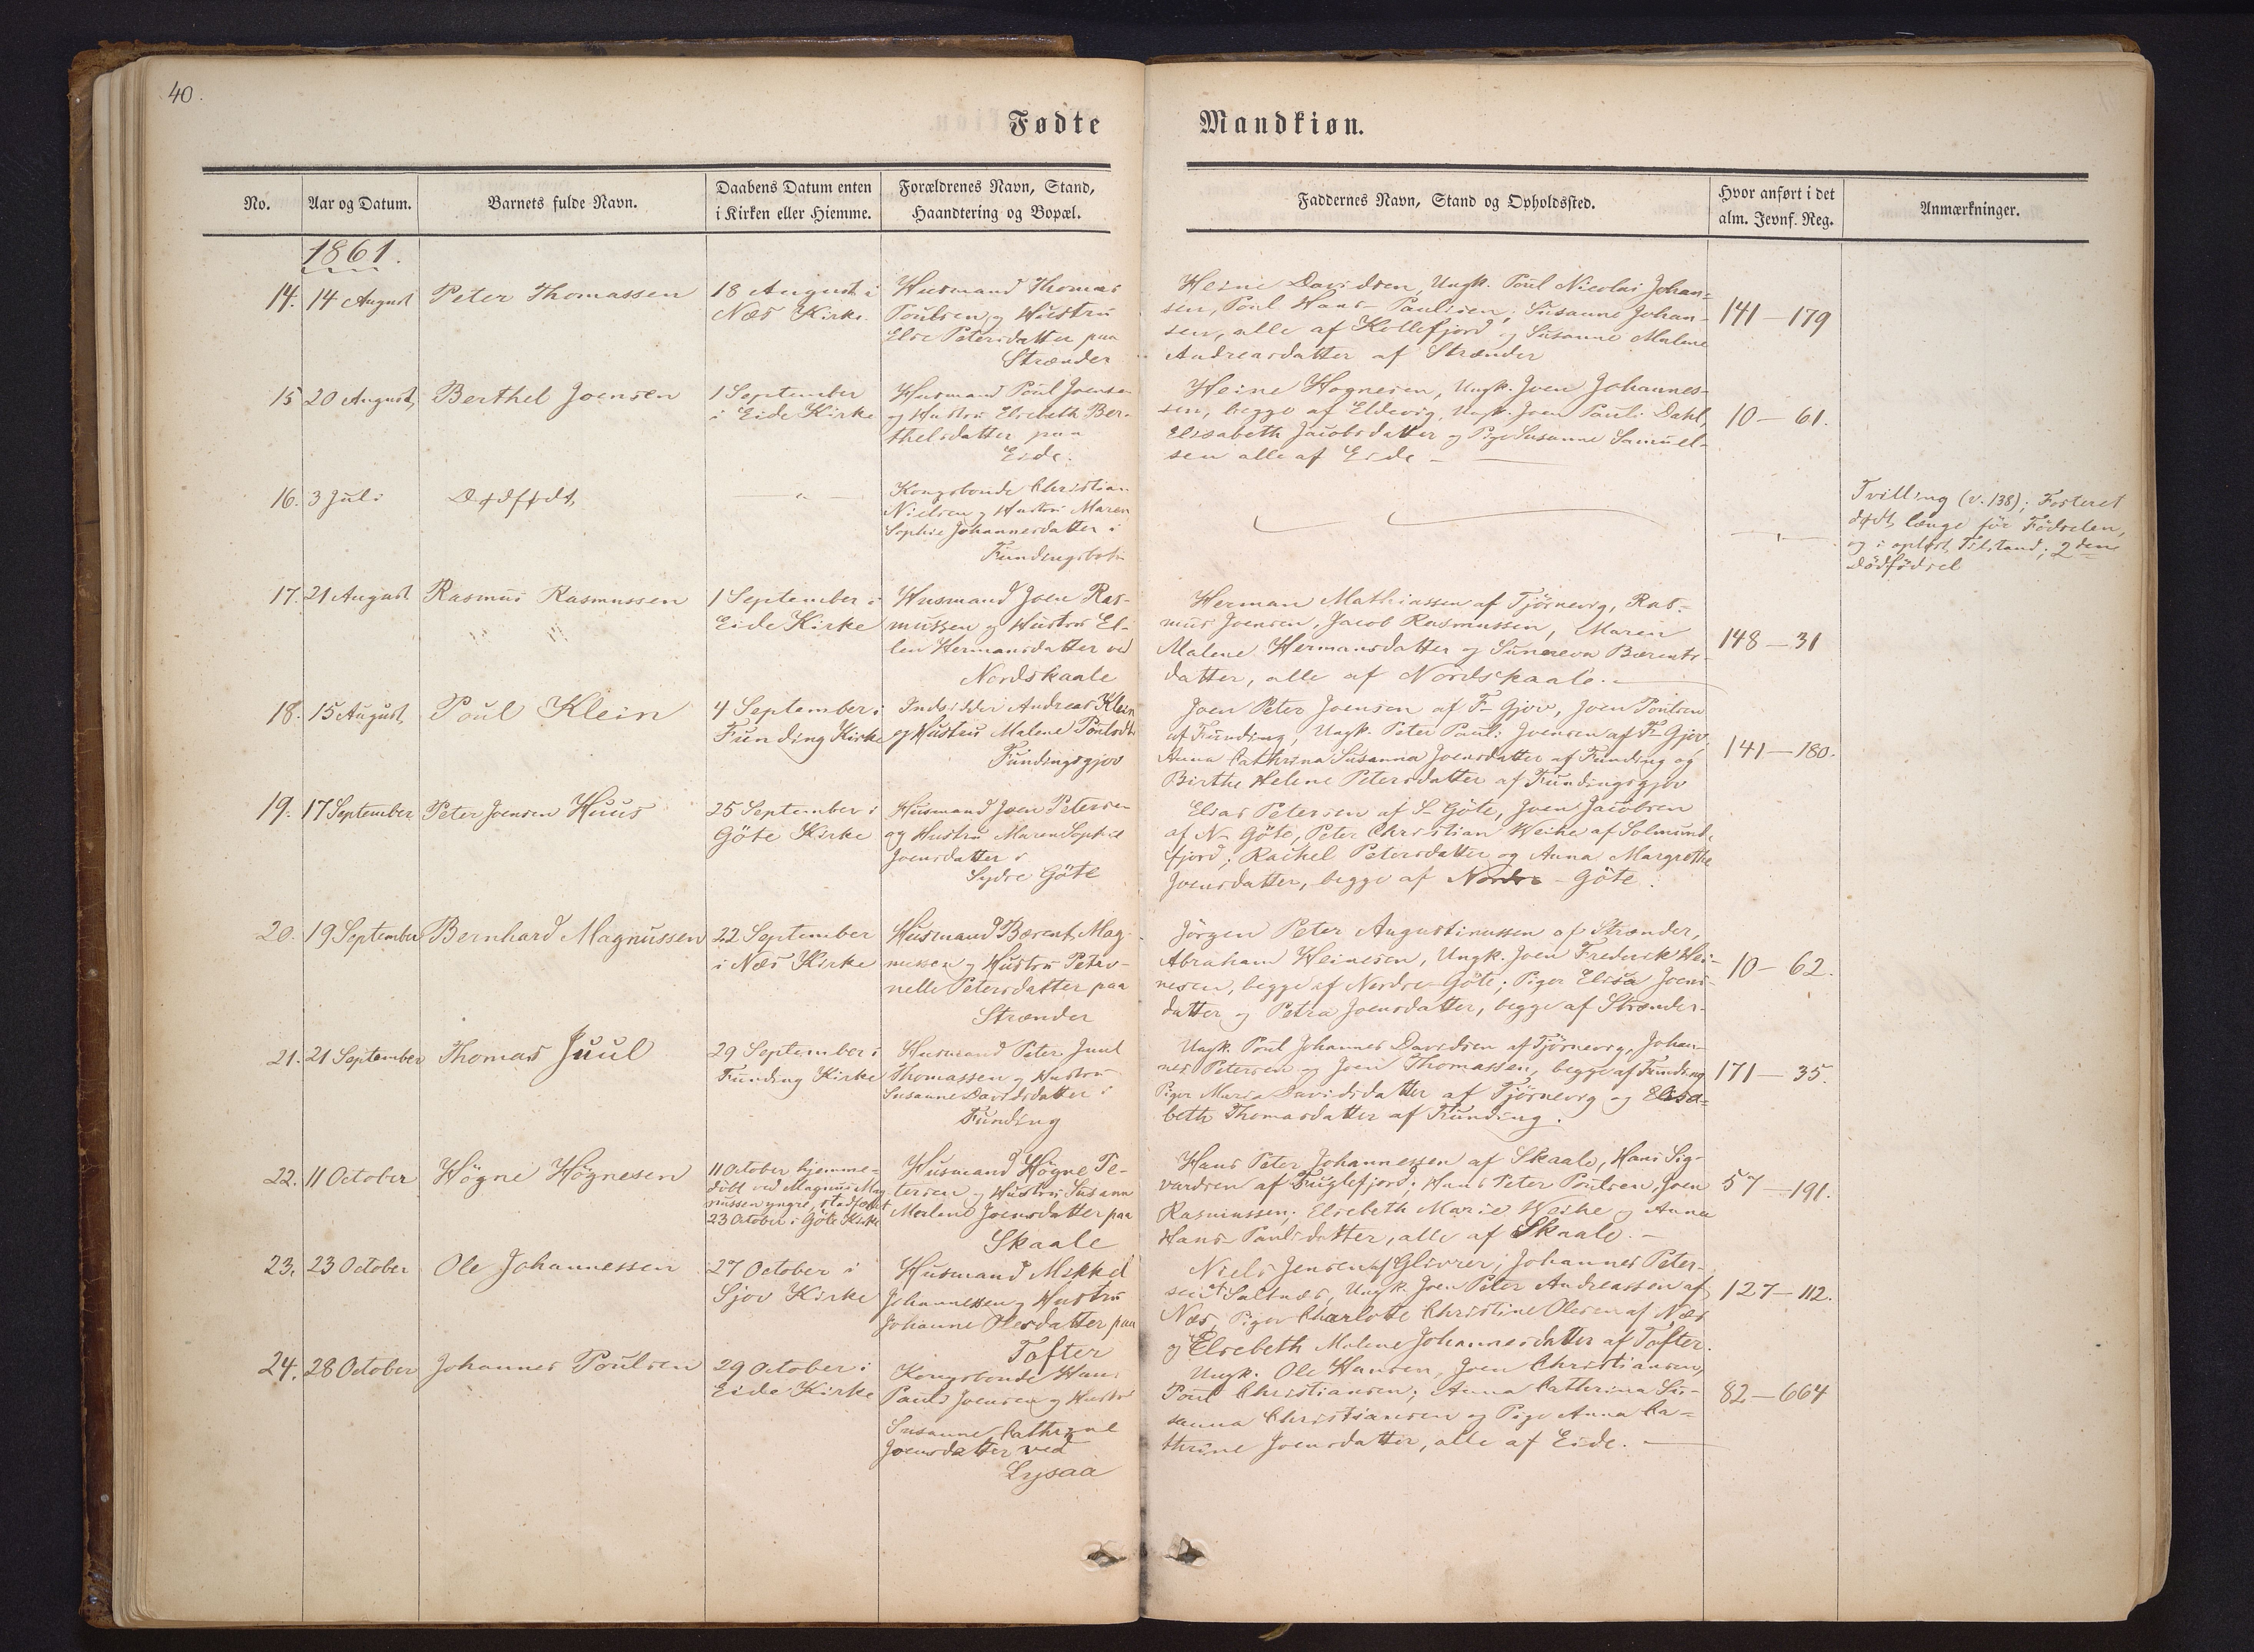 40.
Fødte Mandkiøn.
No.
Aar og Datum.
Barnets fulde Navn.
Daabens Datum enten
i Kirken eller Hiemme.
Forældrenes Navn, Stand,
Haandtering og Bopæl.
Faddernes Navn, Stand og Opholdssted.
Hvor anført i det
alm. Jevnf. Reg.
Anmærkninger.
1861.
14. 14 August
Peter Thomassen
18 August i
Næs Kirke.
Husmand Thomas
Poulsen og Hustru
Else Petersdatter paa
Strænder
Heine Davidsen, Ungk. Poul Nicolai Johan-
sen, Poul Hans Paulisen; Susanne Johan-
sen, alle af Kollefjord og Susanne Malene
Andreasdatter af Strænder
141 — 179
15 20 August,
Berthel Joensen
1 September
i Eide Kirke
Husmand Poul Joensen
og Hustru Elsebeth Ber-
thelsdatter paa
Eide.
Heine Hognesen, Ungk. Joen Johannes-
sen, begge af Eldevig, Ungk. Joen Pauli Dahl,
Elisabeth Jacobsdatter og Pige Susanne Samuel-
sen alle af Eide —
10 — 61.
16. 3 Juli
Dødfødt,
" —
Kongsbonde Christian
Nielsen og Hustru Maren
Sophie Johannesdatter i
Fundingsbotn
Tvilling (v. 138); Fosteret
dødt længe før Fødselen,
og i opløst Tilstand; 2den
Dødfødsel
17. 21 August
Rasmus Rasmussen
1 September i
Eide Kirke
Husmand Joen Ras-
mussen og Hustru El-
len Hermansdatter ved
Nordskaale
Herman Mathiassen af Tjörnevig, Ras-
mus Joensen, Jacob Rasmussen, Maren
Malene Hermansdatter og Sunneva Bærents-
datter, alle af Nordskaale. —
148 — 31
18. 15 August,
Poul Klein
4 September i
Funding Kirke
Indsidder Andreas Klein
og Hustru Malene Poulsdtr
Fundingsgjov
Joen Peter Joensen af F— Gjov, Joen Poulsen
af Funding, Ungk. Peter Pauli Joensen af F— Gjov,
Anna Cathrina Susanna Joensdatter af Funding og
Birthe Helene Petersdatter af Fundingsgjov
141 — 180.
19. 17 September
Peter Joensen Huus
25 September i
Göte Kirke
Husmand Joen Petersen
og Hustru Maren Sophie
Joensdatter i
Sydre Göte
Elias Petersen af S— Göte, Joen Jacobsen
af N— Göte, Peter Christian Weihe af Solmund-
fjord; Rachel Petersdatter og Anna Margrethe
Joensdatter, begge af Nordre - Göte.
20. 19 September
Bernhard Magnussen
22 September
i Næs Kirke
Husmand Bærent Mag-
nussen og Hustru Petro-
nelle Petersdatter paa
Strænder
Jörgen Peter Augustinussen af Strænder,
Abraham Heinesen, Ungk. Joen Frederik Hei-
nesen, begge af Nordre Göte; Piger Elisa Joens-
datter og Petra Joensdatter, begge af Strænder.
10 — 62.
21. 21 September
Thomas Juul
29 September i
Funding Kirke
Husmand Peter Juul
Thomassen og Hustru
Susanne Davidsdatter i
Funding
Ungk. Poul Johannes Davidsen af Tjörnevig, Johan-
nes Petersen og Joen Thomassen, begge af Funding
Piger Maria Davidsdatter af Tjörnevig og Elisa-
beth Thomasdatter af Funding.
171 — 35.
22. 11 October
Högne Högnesen
11 October hjemme-
döbt ved Magnus Mag
nussen yngre, stadfæstet
23 October i Göte Kirke
Husmand Högne Pe-
tersen og Hustru Susann
Malene Joensdatter paa
Skaale
Hans Peter Johannessen af Skaale, Hans Sig-
vardsen af Fuglefjord; Hans Peter Poulsen, Joen
Rasmussen; Elsebeth Marie Weihe og Anna
Hans Paulsdatter, alle af Skaale. —
57 — 191.
23. 23 October
Ole Johannessen
27 October i
Sjov Kirke
Husmand Mikkel
Johannessen og Hustru
Johanne Olesdatter paa
Tofter
Niels Jensen af Glivrer, Johannes Peter-
sen af Saltnæs, Ungk. Joen Peter Andreassen af
Næs, Piger Charlotte Christine Olesen af Næs
og Elsebeth Malene Johannesdatter af Tofter.
127 — 112.
24. 28 October
Johannes Poulsen
29 October i
Eide Kirke
Kongsbonde Hans
Pauli Joensen og Hustru
Susanne Cathrine
Joensdatter ved
Lysaa
Ungk. Ole Hansen, Joen Christiansen,
Poul Christiansen; Anna Cathrina Su-
sanna Christiansen og Pige Anna Ca-
thrine Joensdatter, alle af Eide. —
82. — 664